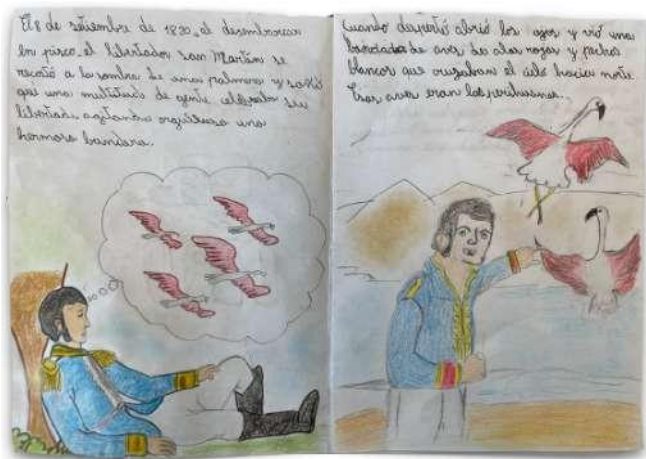 El 8 de setiembre de 1820, al desembarcar
en pisco, el libertador san Martín se
recostó a la sombra de una palmera y soñó
que una multitud de gente celebraba su
libertad, agitando orgullosa una
hermosa bandera.
Cuando despertó abrió los ojos y vió una
bandada de aves de alas rojas y pechos
blancos que cruzaban el cielo hacia norte
Esas aves eran las parihuanas.